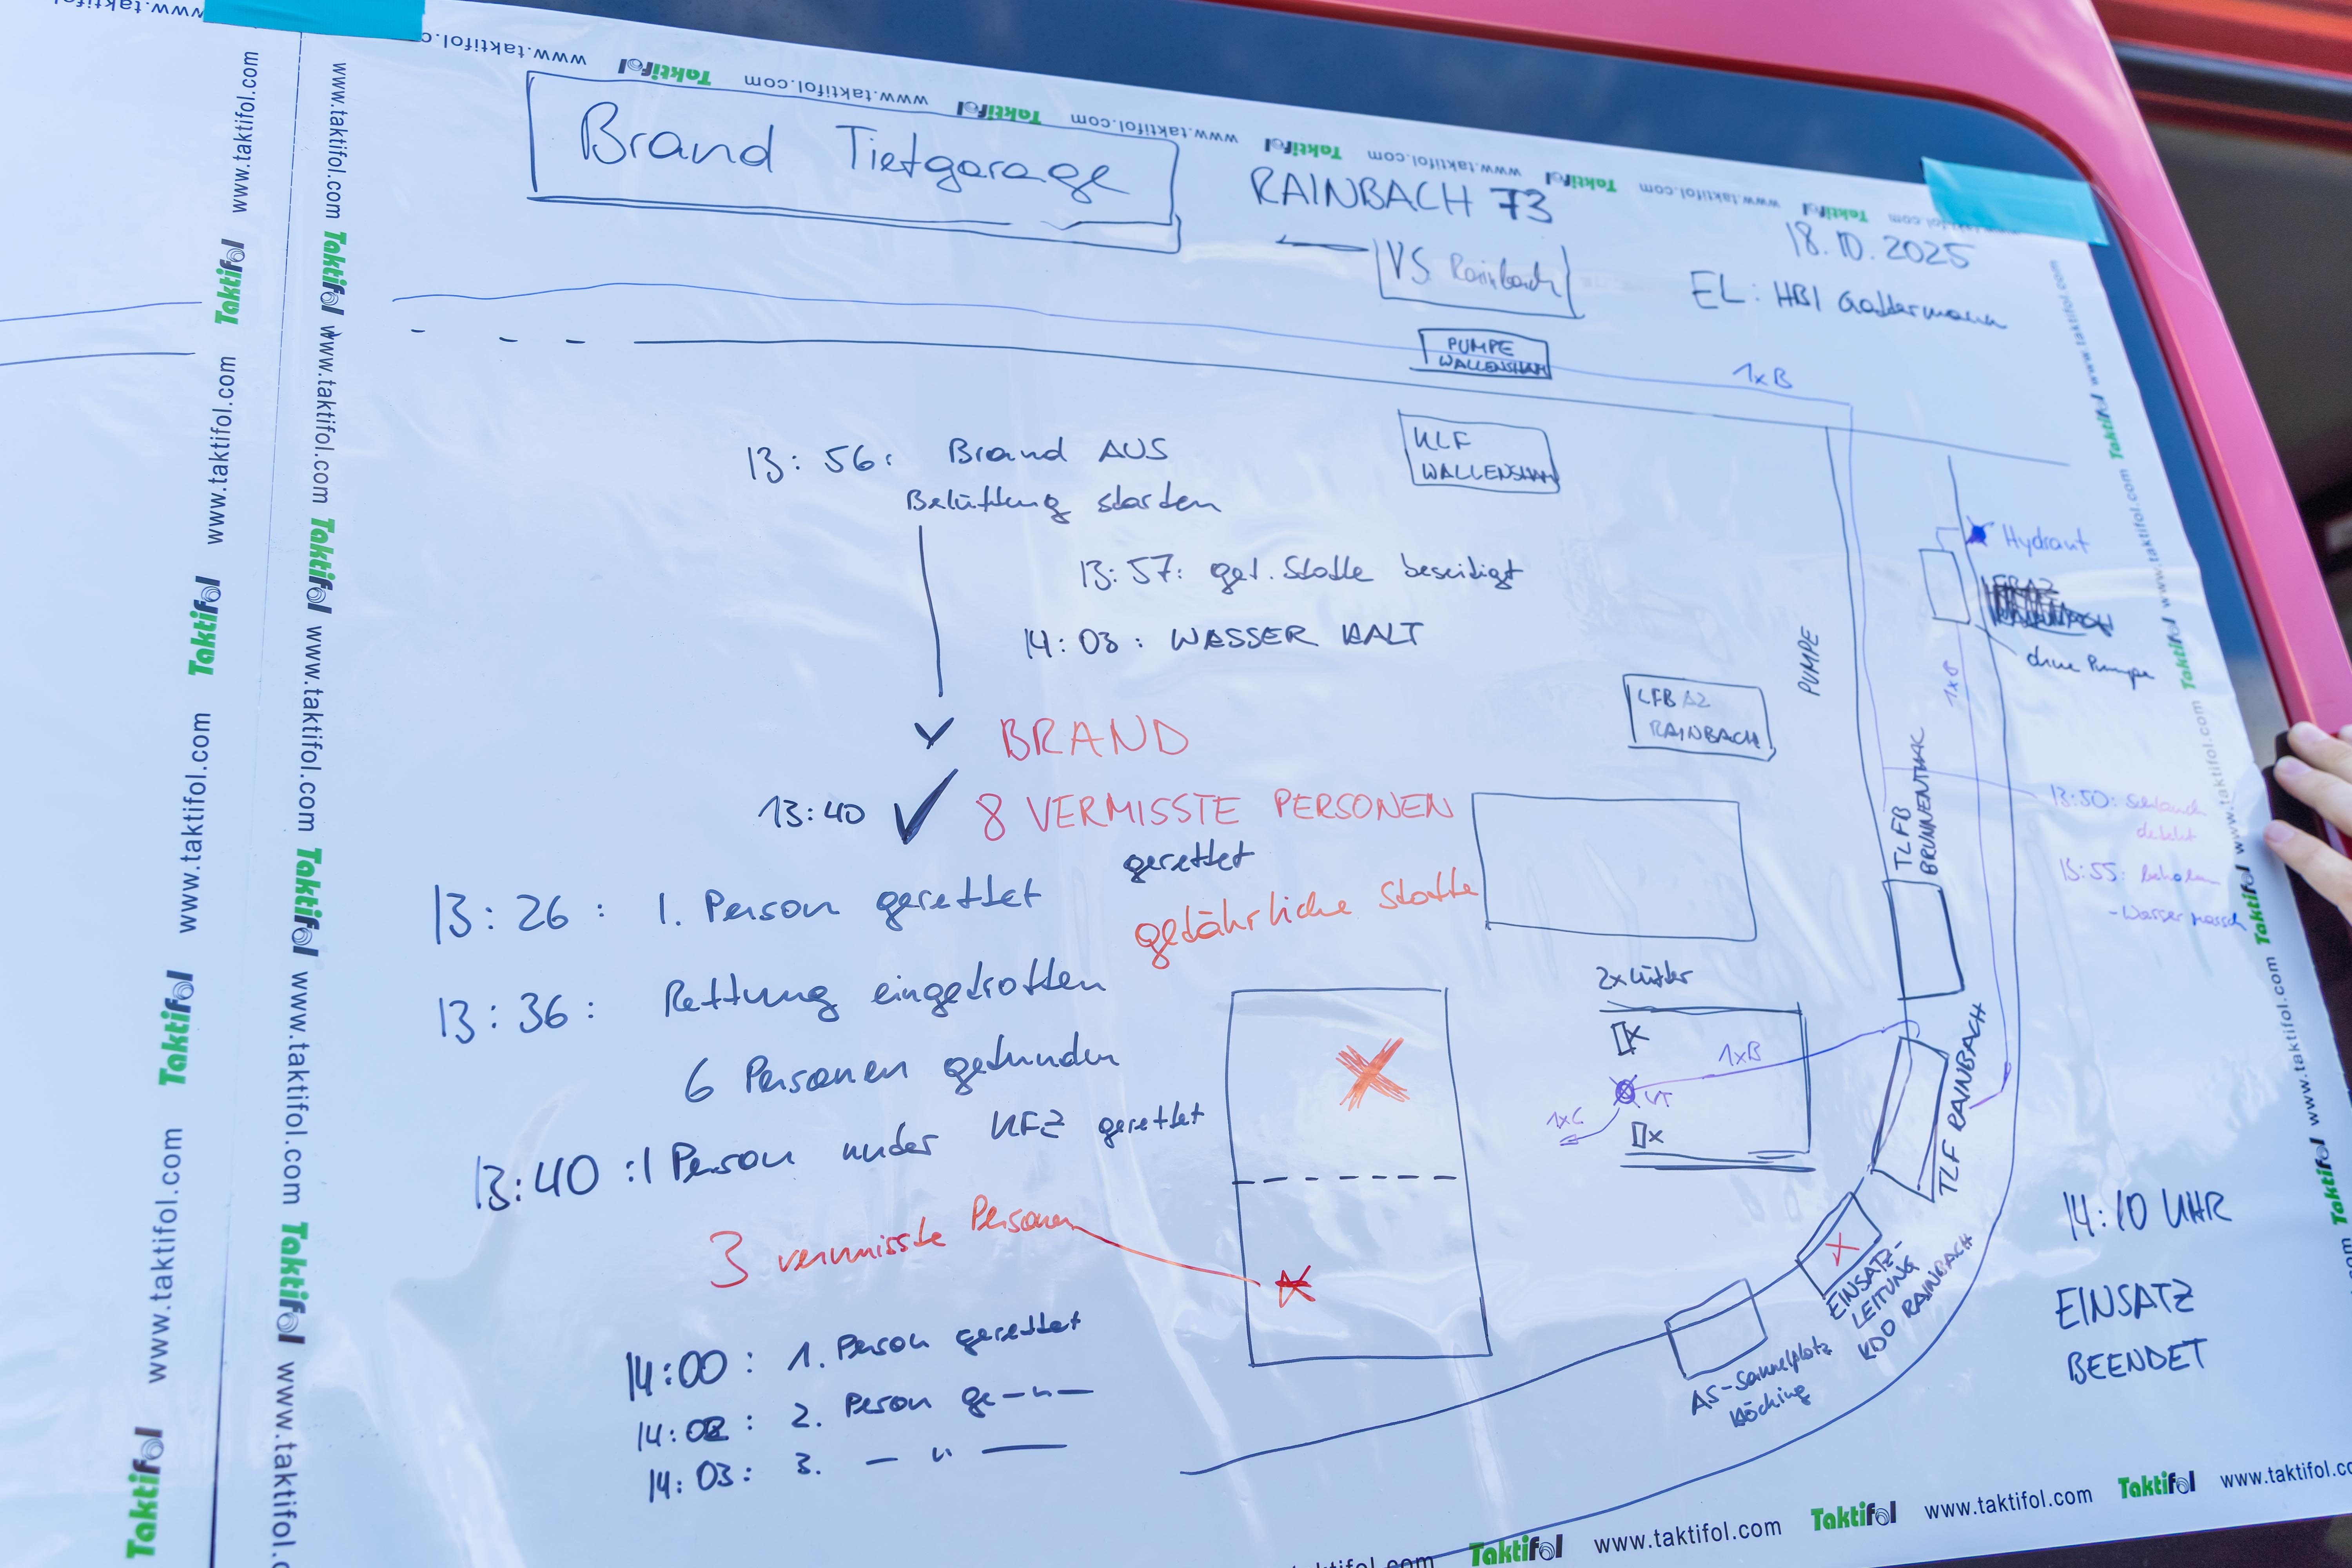 Brand Tiefgarage
RAINBACH 73
18.10.2025
VS Rainbach
EL: HBI Gattermann
PUMPE
WALLENSHAM
1xB
KLF
WALLENSHAM
13:56: Brand AUS
Belüftung starten
13:57: gef. Stoffe beseitigt
14:03: WASSER HALT
Hydrant
LFBA2
RAINBACH
ohne Pumpe
1xB
PUMPE
LFB A2
RAINBACH
BRAND
13:40 8 VERMISSTE PERSONEN
gerettet
gefährliche Stoffe
TLFB
BRUNNENTHAL
13:50: Schlauch
defekt
13:55: behoben
- Wasser marsch
13:26: 1. Person gerettet
13:36: Rettung eingetroffen
6 Personen gefunden
13:40: 1 Person unter KFZ gerettet
2x Lüfter
1xB
VT
1xC
TLF RAINBACH
3 vermisste Personen
EINSATZ-
LEITUNG
KDO RAINBACH
AS-Sammelplatz
Höcking
14:00: 1. Person gerettet
14:02: 2. Person ge — " —
14:03: 3. — " —
14:10 UHR
EINSATZ
BEENDET
Taktifol www.taktifol.com